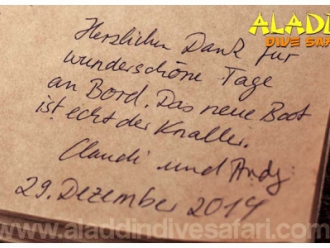 ALADD
DIVE SA
Herzlichen Dank für
wunderschöne Tage
an Bord. Das neue Boot
ist echt der Knaller.
Claudi und Andy
29. Dezember 2014
www.aladdindivesafari.com